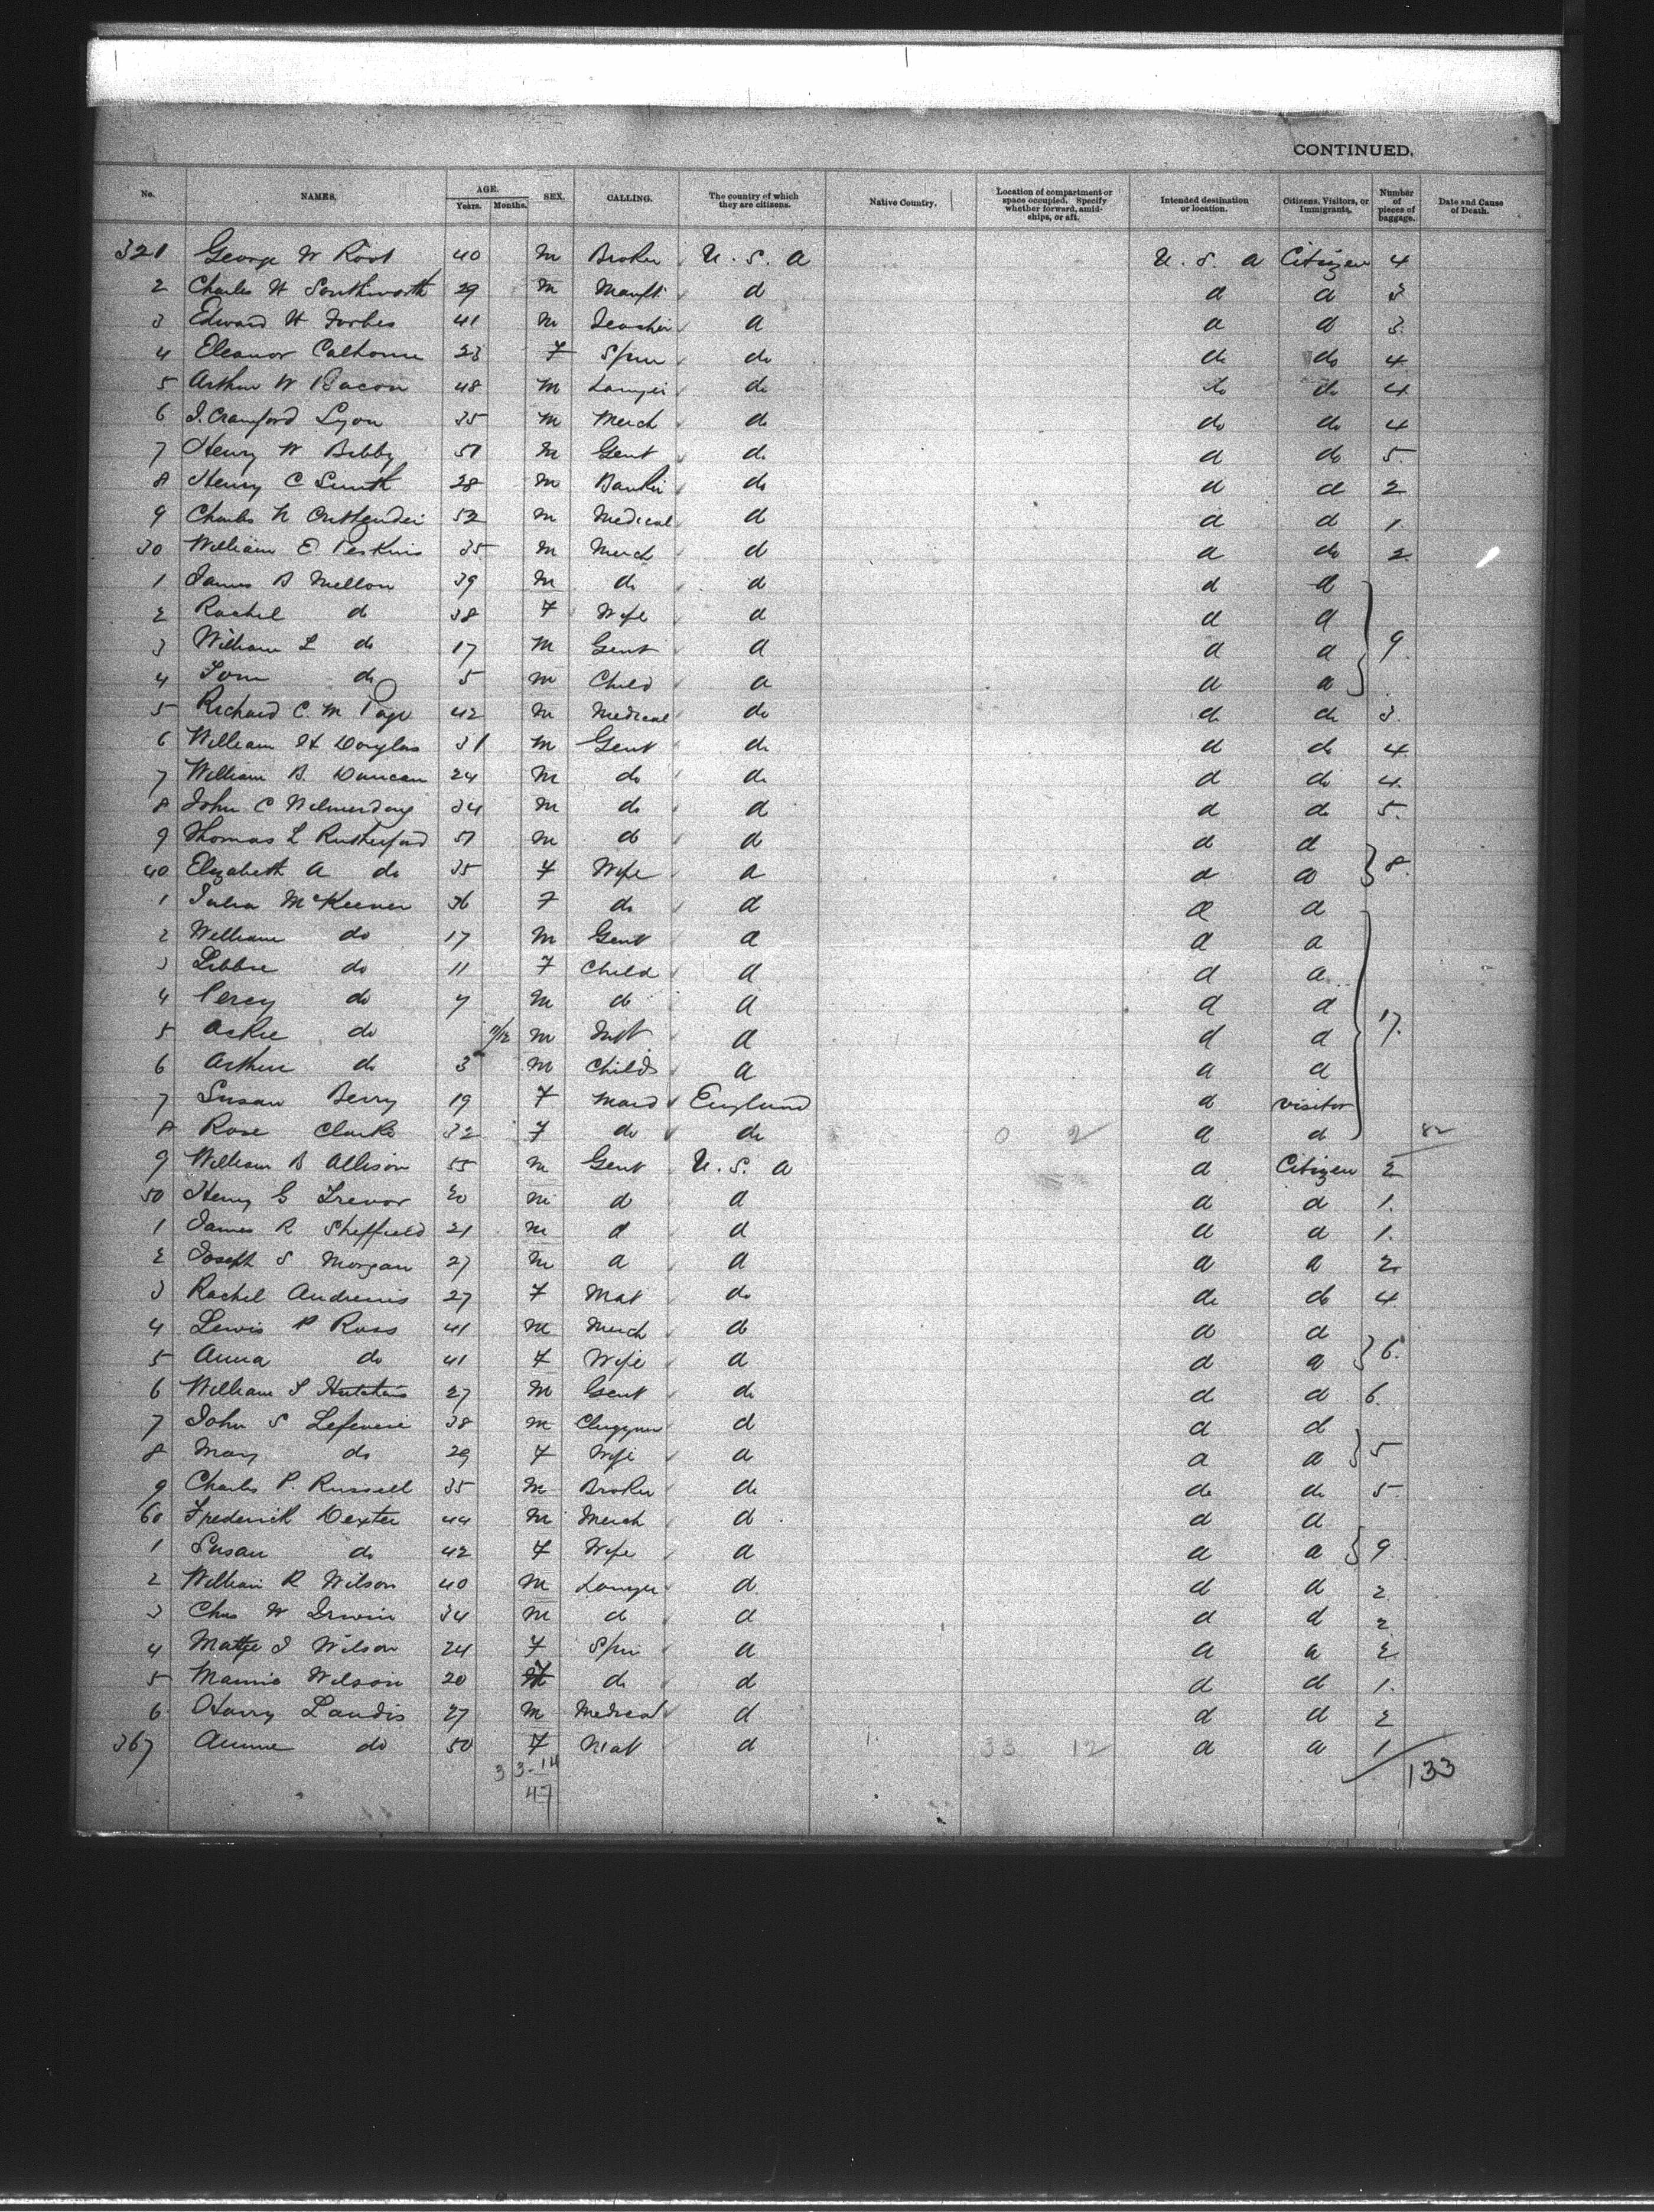 CONTINUED.
No. NAMES. AGE. Years. Months. SEX. CALLING. The country of which they are citizens. Native Country. Location of compartment or space occupied. Specify whether forward, amidships, or aft. Intended destination or location. Citizens, Visitors, or Immigrants. Number of pieces of baggage. Date and Cause of Death.
321 George W Root 40 M Broker U. S. A U. S. A Citizen 4
2 Charles H Southworth 29 M Manft d d d 3
3 Edward H Forbes 41 M d d d 3.
4 Eleanor Calhoun 23 F Spin do do do 4
5 Arthur W Bacon 48 M Lawyer do do do 4
6 J. Crawford Lyon 35 M Merch do do do 4
7 Henry W Bibby 51 M Gent do d do 5.
8 Henry C Smith 28 M Banker do d d 2
9 Charles N Crittenden 52 M Medical d d d 1.
30 William E Perkins 35 M Merch d d do 2.
1 James B Mellon 39 M do d d d
2 Rachel d 38 F Wife d d d
3 William L do 17 M Gent d d d 9.
4 Tom do 5 M Child d d d
5 Richard C. M Page 42 M Medical do do do 3.
6 William H Douglas 31 M Gent do d do 4.
7 William B. Duncan 24 M do do d do 4.
8 John C Wilmerding 34 M do d d do 5.
9 Thomas L Rutherford 51 M d d d d
40 Elizabeth A do 35 F Wife d d d 8.
1 Julia McKeever 36 F do d d d
2 William do 17 M Gent d d d
3 Libbie do 11 F Child d d d
4 Percy do 7 M d d d d
5 do M Inft d d d 17.
6 Arthur do 3 M Child d d d
7 Susan Berry 19 F Maid England d visitor
8 Rose Clarke 32 F do do 0 2 d d
9 William B Allison 55 M Gent U. S. A d Citizen 2
50 Henry G Trevor 20 M d d d d 1.
1 James R Sheffield 21 M d d d d 1.
2 Joseph S Morgan 27 M d d d d 2
3 Rachel Andrews 27 F Mat do do do 4
4 Lewis P Ross 41 M Merch d d d
5 Anna do 41 F Wife d d d 6.
6 William S 27 M Gent do d d 6.
7 John S Lefevere 38 M Clergyman d d d
8 Mary do 29 F Wife d d d 5
9 Charles P. Russell 35 M Broker do do do 5.
60 Frederick Dexter 44 M Merch d d d
1 Susan do 42 F Wife d d d 9.
2 William R Wilson 40 M Lawyer d d d 2
3 Chas W Irwin 34 M d d d d 2
4 Mattie J Wilson 24 F Spin d d d 2
5 Mamie Wilson 20 F do d d d 1.
6 Harry Landis 27 M Medical d d d 2
367 Annie do 50 F Mat d 33 12 d d 1
33-14 133
47